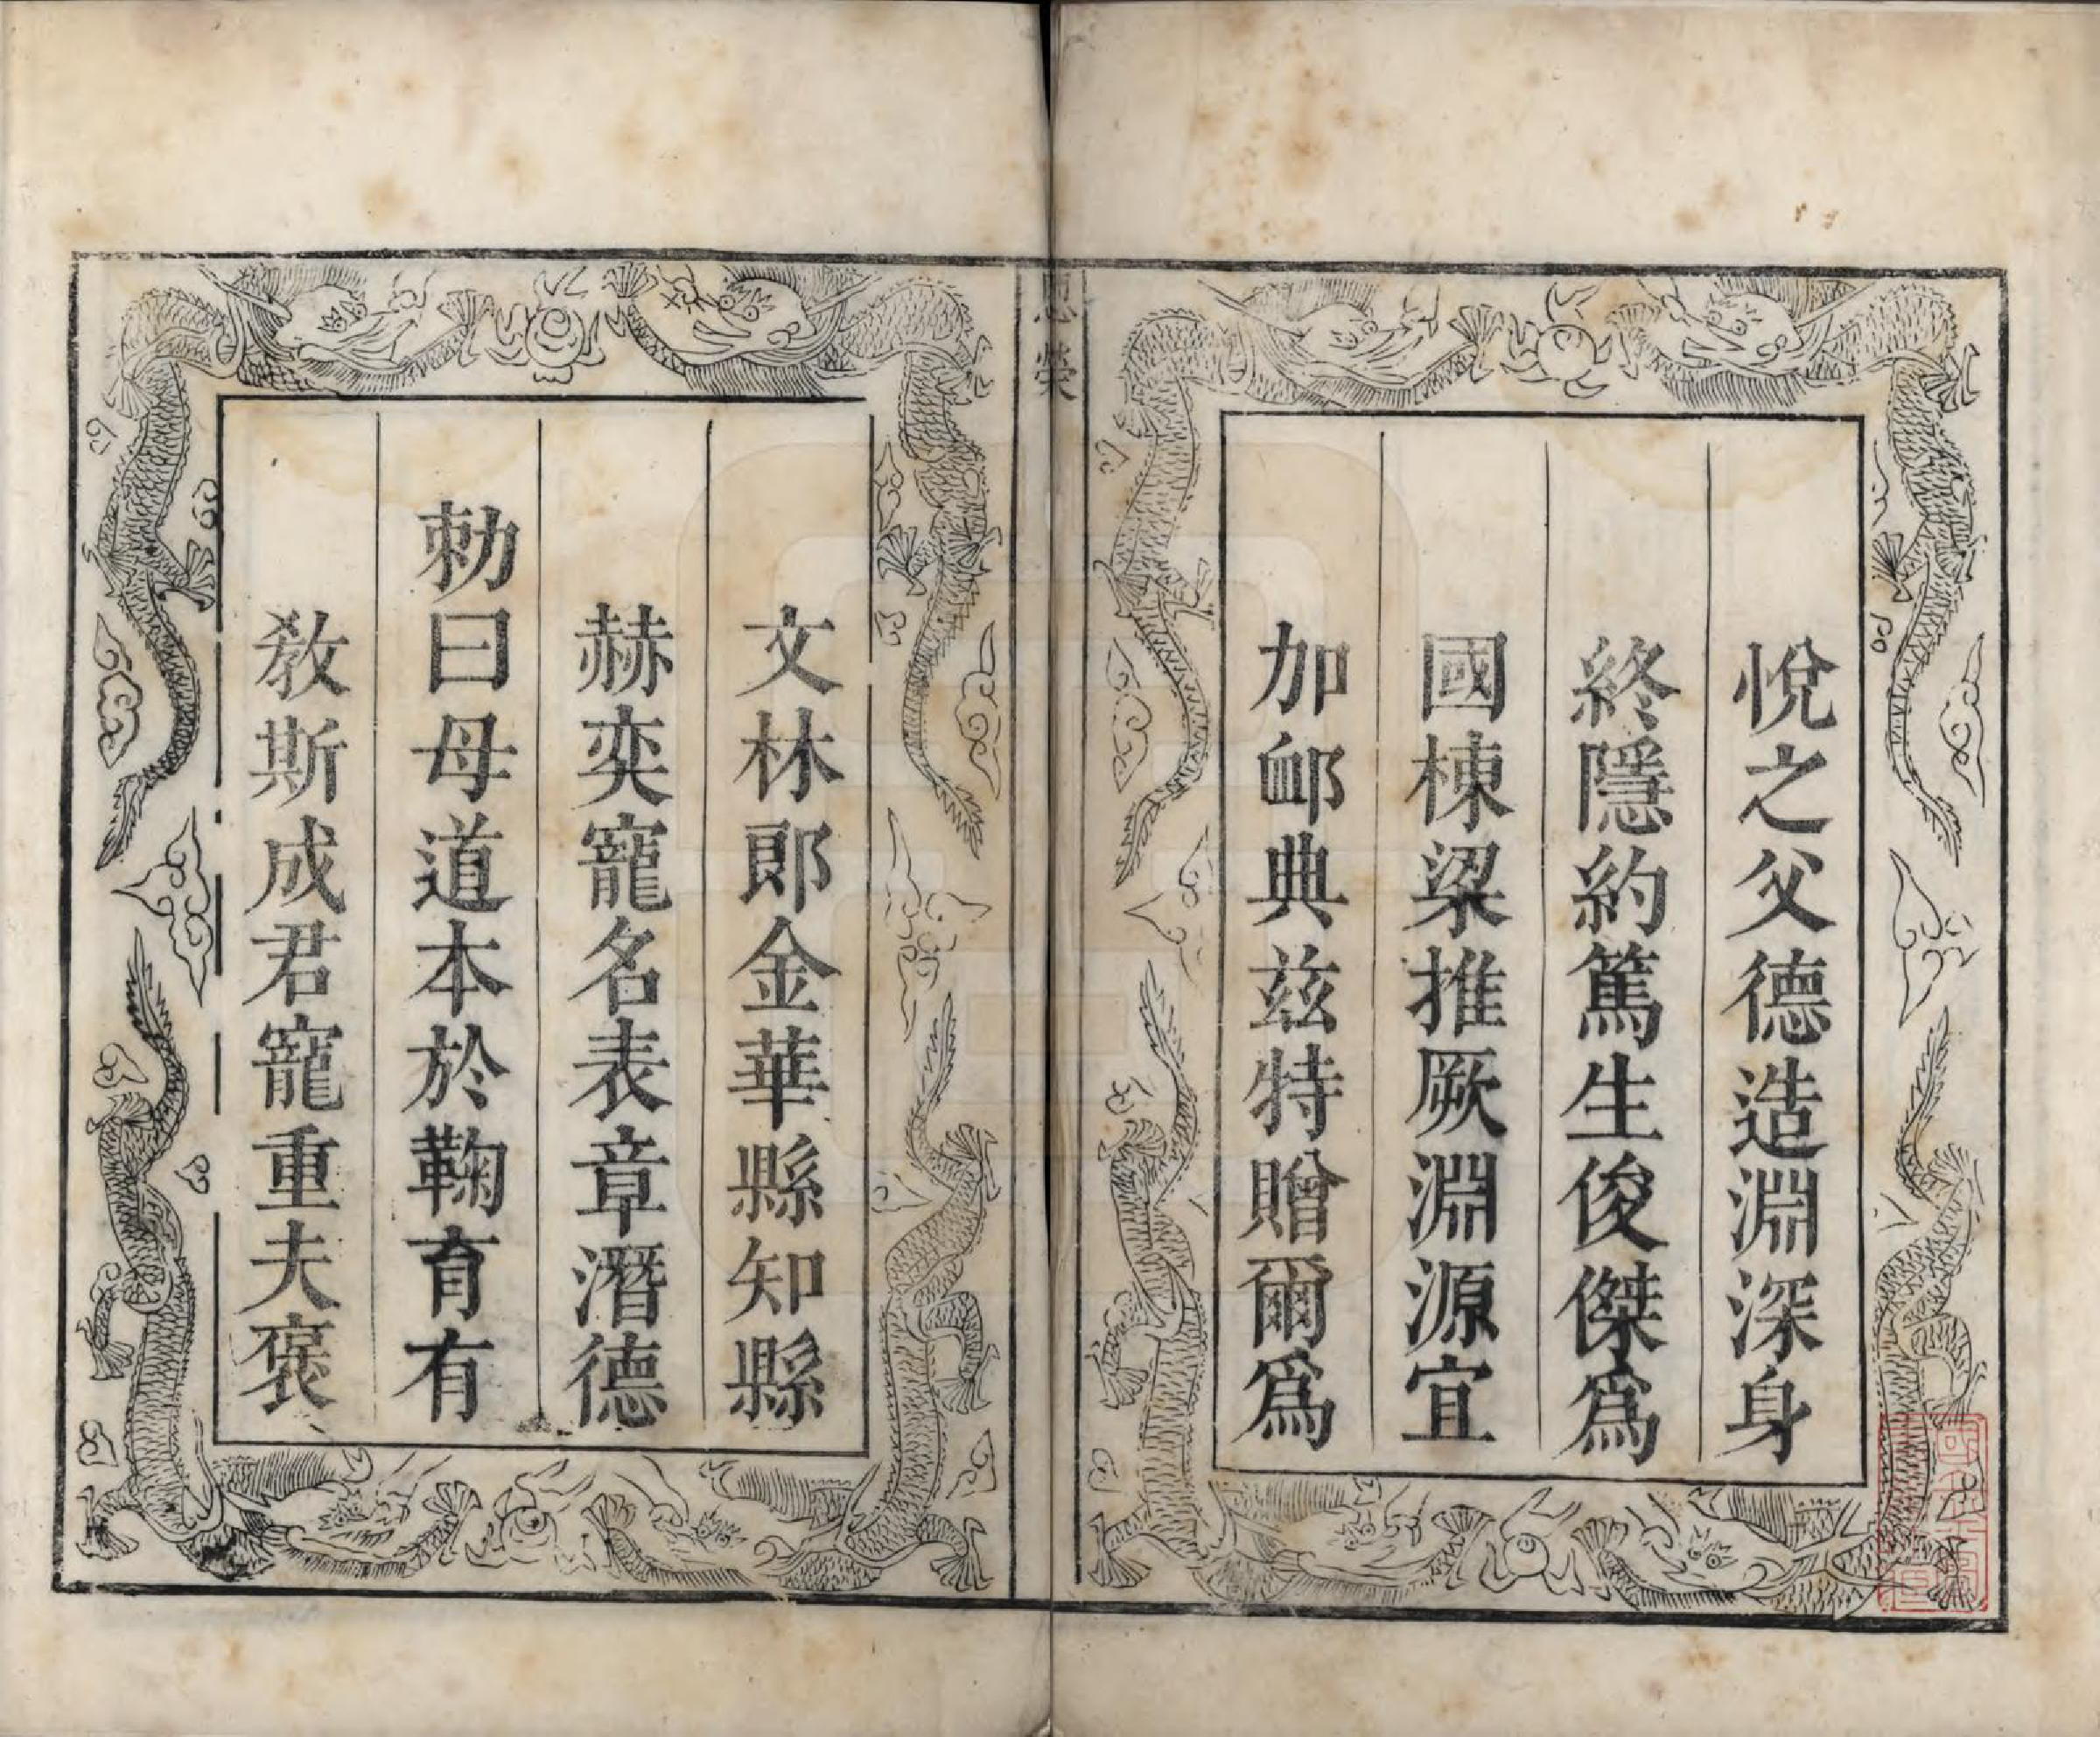 悅之父德造淵深身
終隱約篤生俊傑爲
國棟梁推厥淵源宜
加卹典兹特贈爾爲
文林郎金華縣知縣
赫奕寵名表章潛德
勅曰母道本於鞠育有
敎斯成君寵重夫褒